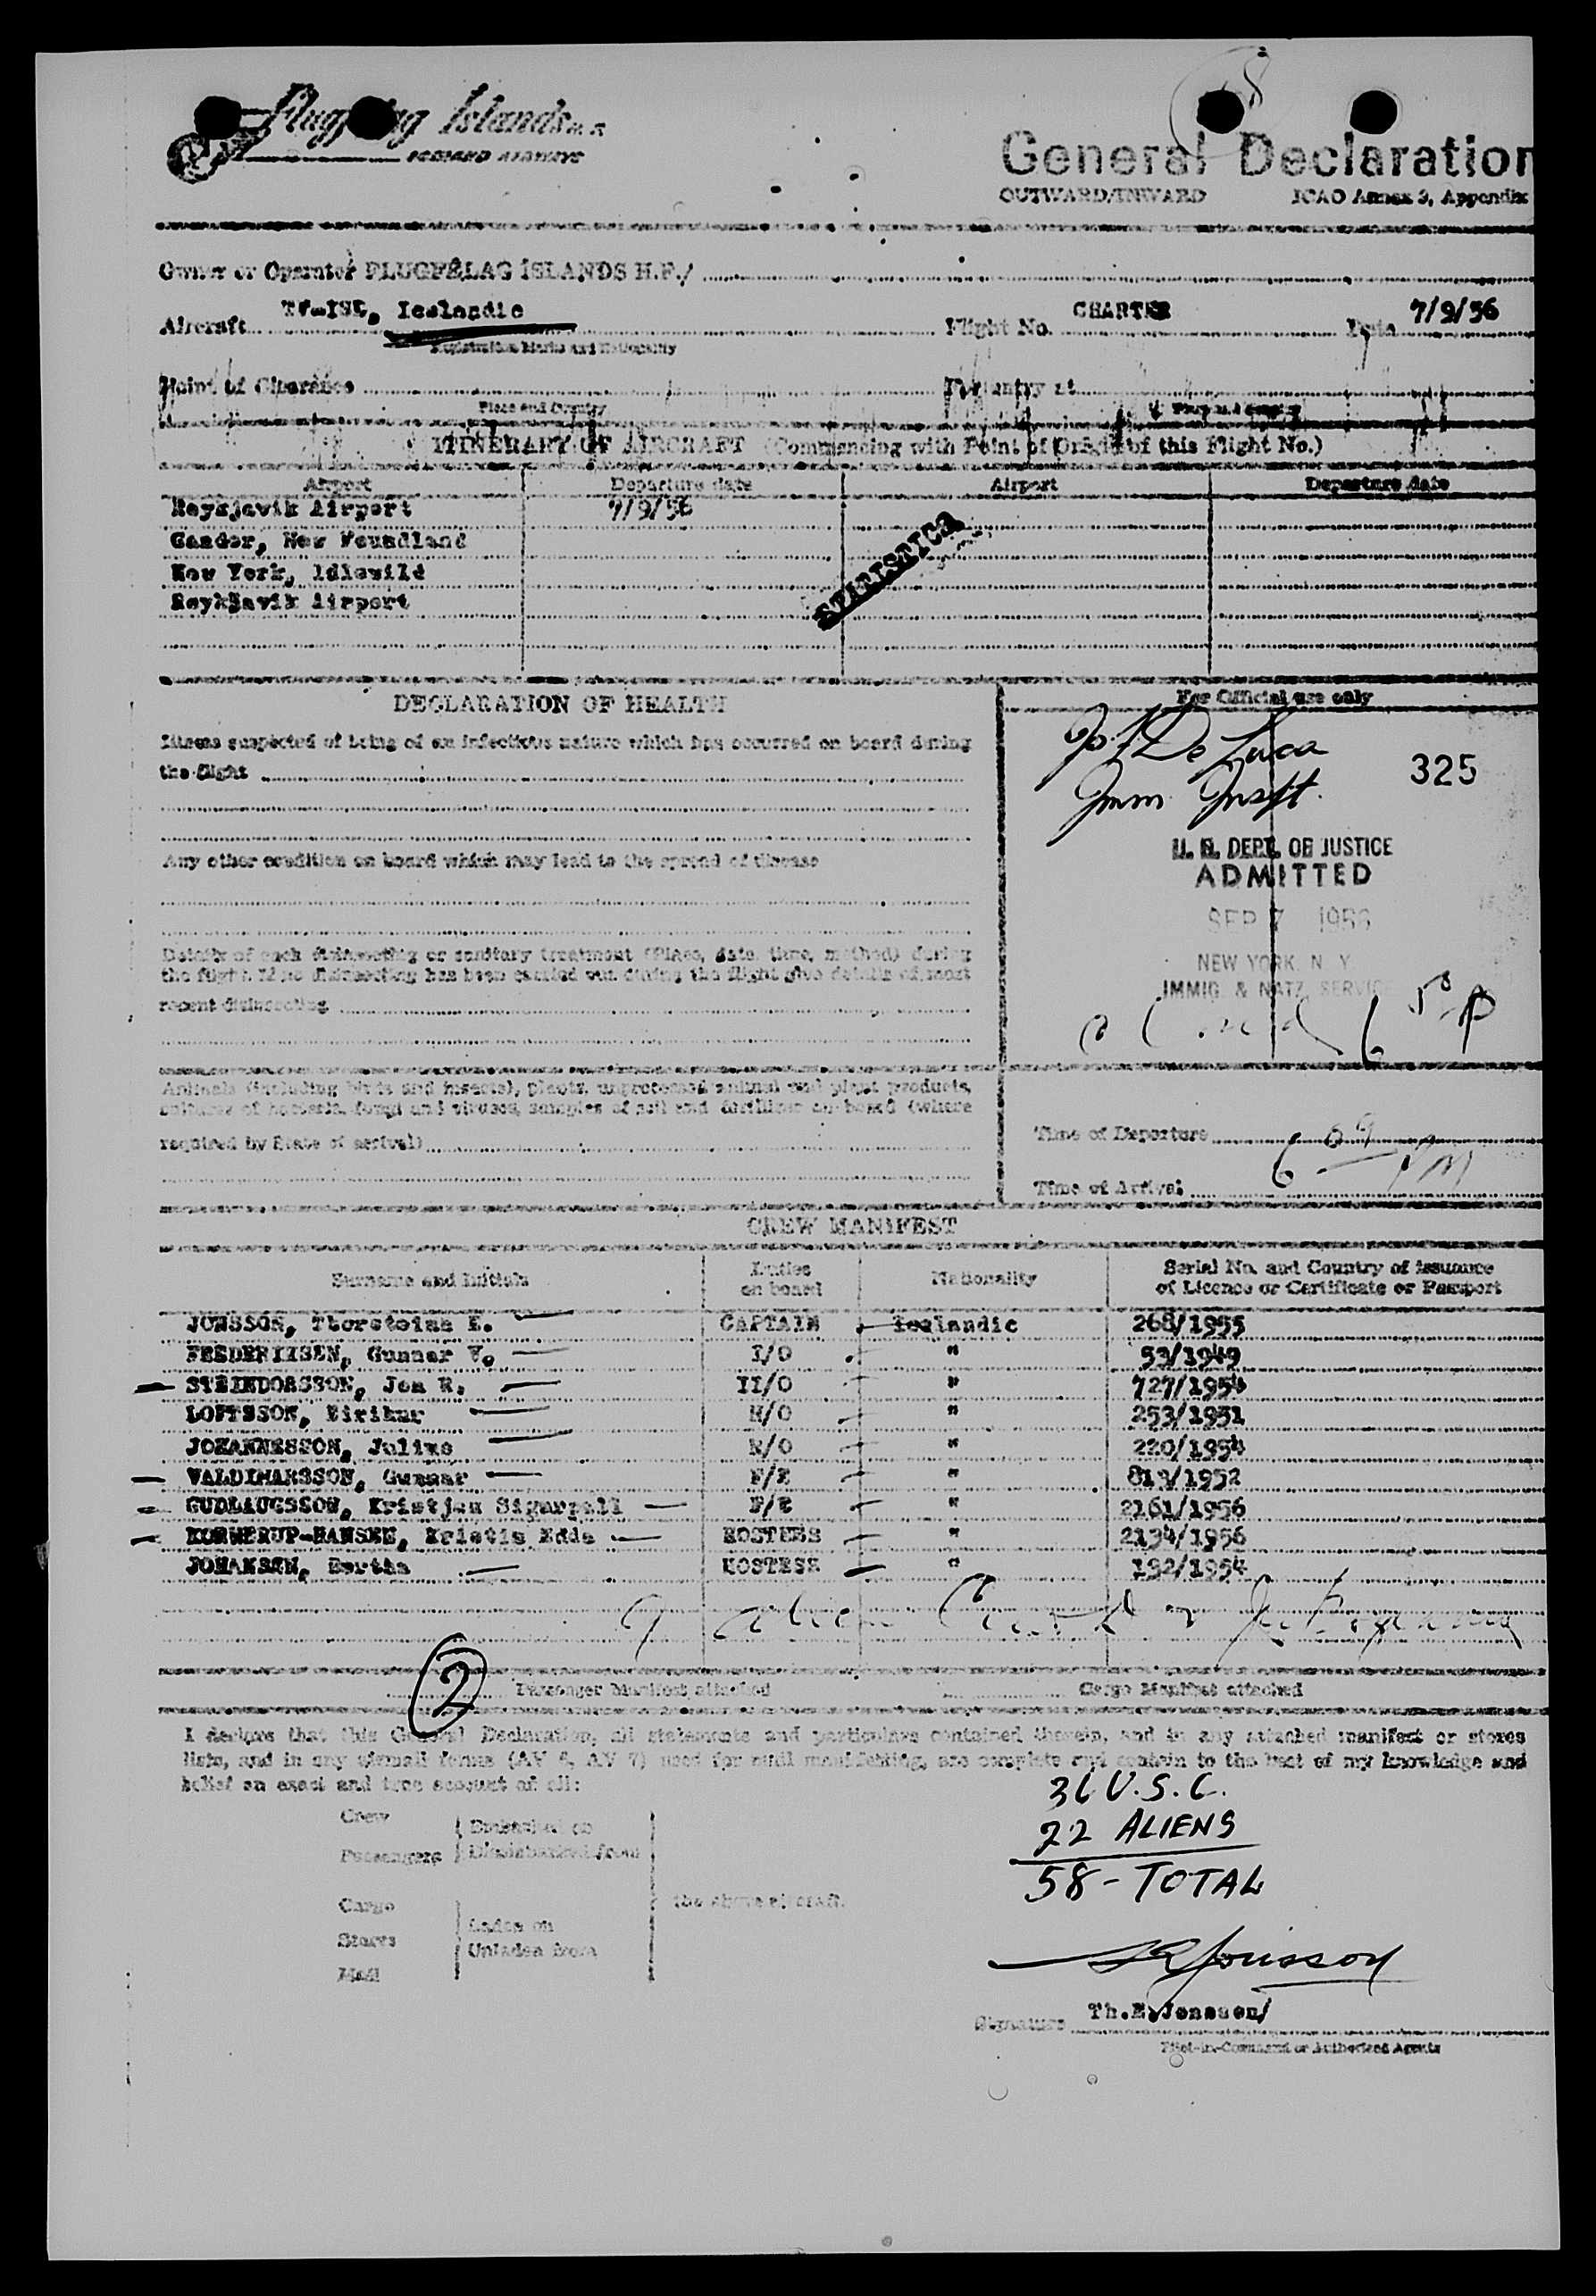 Flugfélag Íslands H.F.
ICELAND AIRWAYS
General Declaration
OUTWARD/INWARD ICAO Annex 9, Appendix
Owner or Operator FLUGFÉLAG ÍSLANDS H.F./
Aircraft Icelandic Flight No. CHARTER Date 7/9/56
Registration Marks and Nationality
Point of Clearance For entry at
Place and Country Place and Country
ITINERARY OF AIRCRAFT (Commencing with Point of Origin of this Flight No.)
Airport Departure date Airport Departure date
Reykjavik Airport 7/9/56
Gander, New Foundland
New York, Idlewild
Reykjavik Airport
STATISTICS
DECLARATION OF HEALTH
For Official use only
Illness suspected of being of an infectious nature which has occurred on board during
the flight
De Luca
Imm Inspt.
325
Any other condition on board which may lead to the spread of disease
U. S. DEPT. OF JUSTICE
ADMITTED
SEP 7 1956
NEW YORK, N. Y.
IMMIG. & NATZ. SERVICE
Details of each disinsecting or sanitary treatment (Place, date, time, method) during
the flight. If no disinsecting has been carried out during the flight give details of most
recent disinsecting
Animals (including birds and insects), plants, unprocessed animal and plant products,
cultures of bacteria, fungi and viruses, samples of soil and fertilizer on board (where
required by State of arrival)
Time of Departure
Time of Arrival
CREW MANIFEST
Surname and Initials Duties on board Nationality Serial No. and Country of issuance of Licence or Certificate or Passport
JONSSON, Thorsteinn E. CAPTAIN Icelandic 268/1955
FREDERIKSEN, Gunnar V. I/O " 53/1949
STEINDORSSON, Jon R. II/O " 727/1954
LOFTSSON, Eirikur N/O " 253/1951
JOHANNESSON, Julius R/O " 220/1954
VALDIMARSSON, Gunnar F/E " 813/1952
GUDLAUGSSON, Kristjan Sigurpall F/E " 2161/1956
KORNERUP-HANSEN, Kristin Edda HOSTESS " 2134/1956
JOHANSEN, Bertha HOSTESS " 192/1954
2
Passenger Manifest attached Cargo Manifest attached
I declare that this General Declaration, all statements and particulars contained therein, and in any attached manifest or stores
lists, and in any airmail forms (AV 6, AV 7) used for mail manifesting, are complete and contain to the best of my knowledge and
belief an exact and true account of all:
36 U.S.C.
22 ALIENS
58 - TOTAL
Crew
Passengers
Embarked on
Disembarked from
Cargo
Stores
Mail
Laden on
Unladen from
the above aircraft.
Jonsson
Signature Th.E.Jonsson/
Pilot-in-Command or Authorized Agents